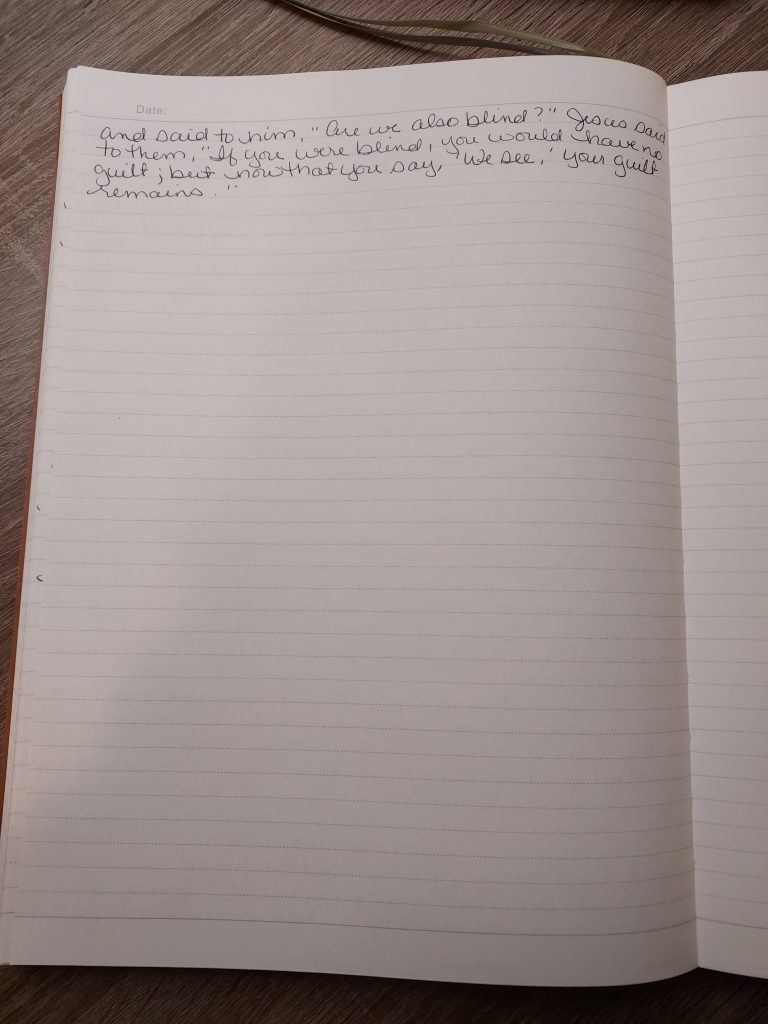 Date:
and said to him, "Are we also blind?" Jesus said
to them, "If you were blind, you would have no
guilt; but now that you say, 'We see,' your guilt
remains."